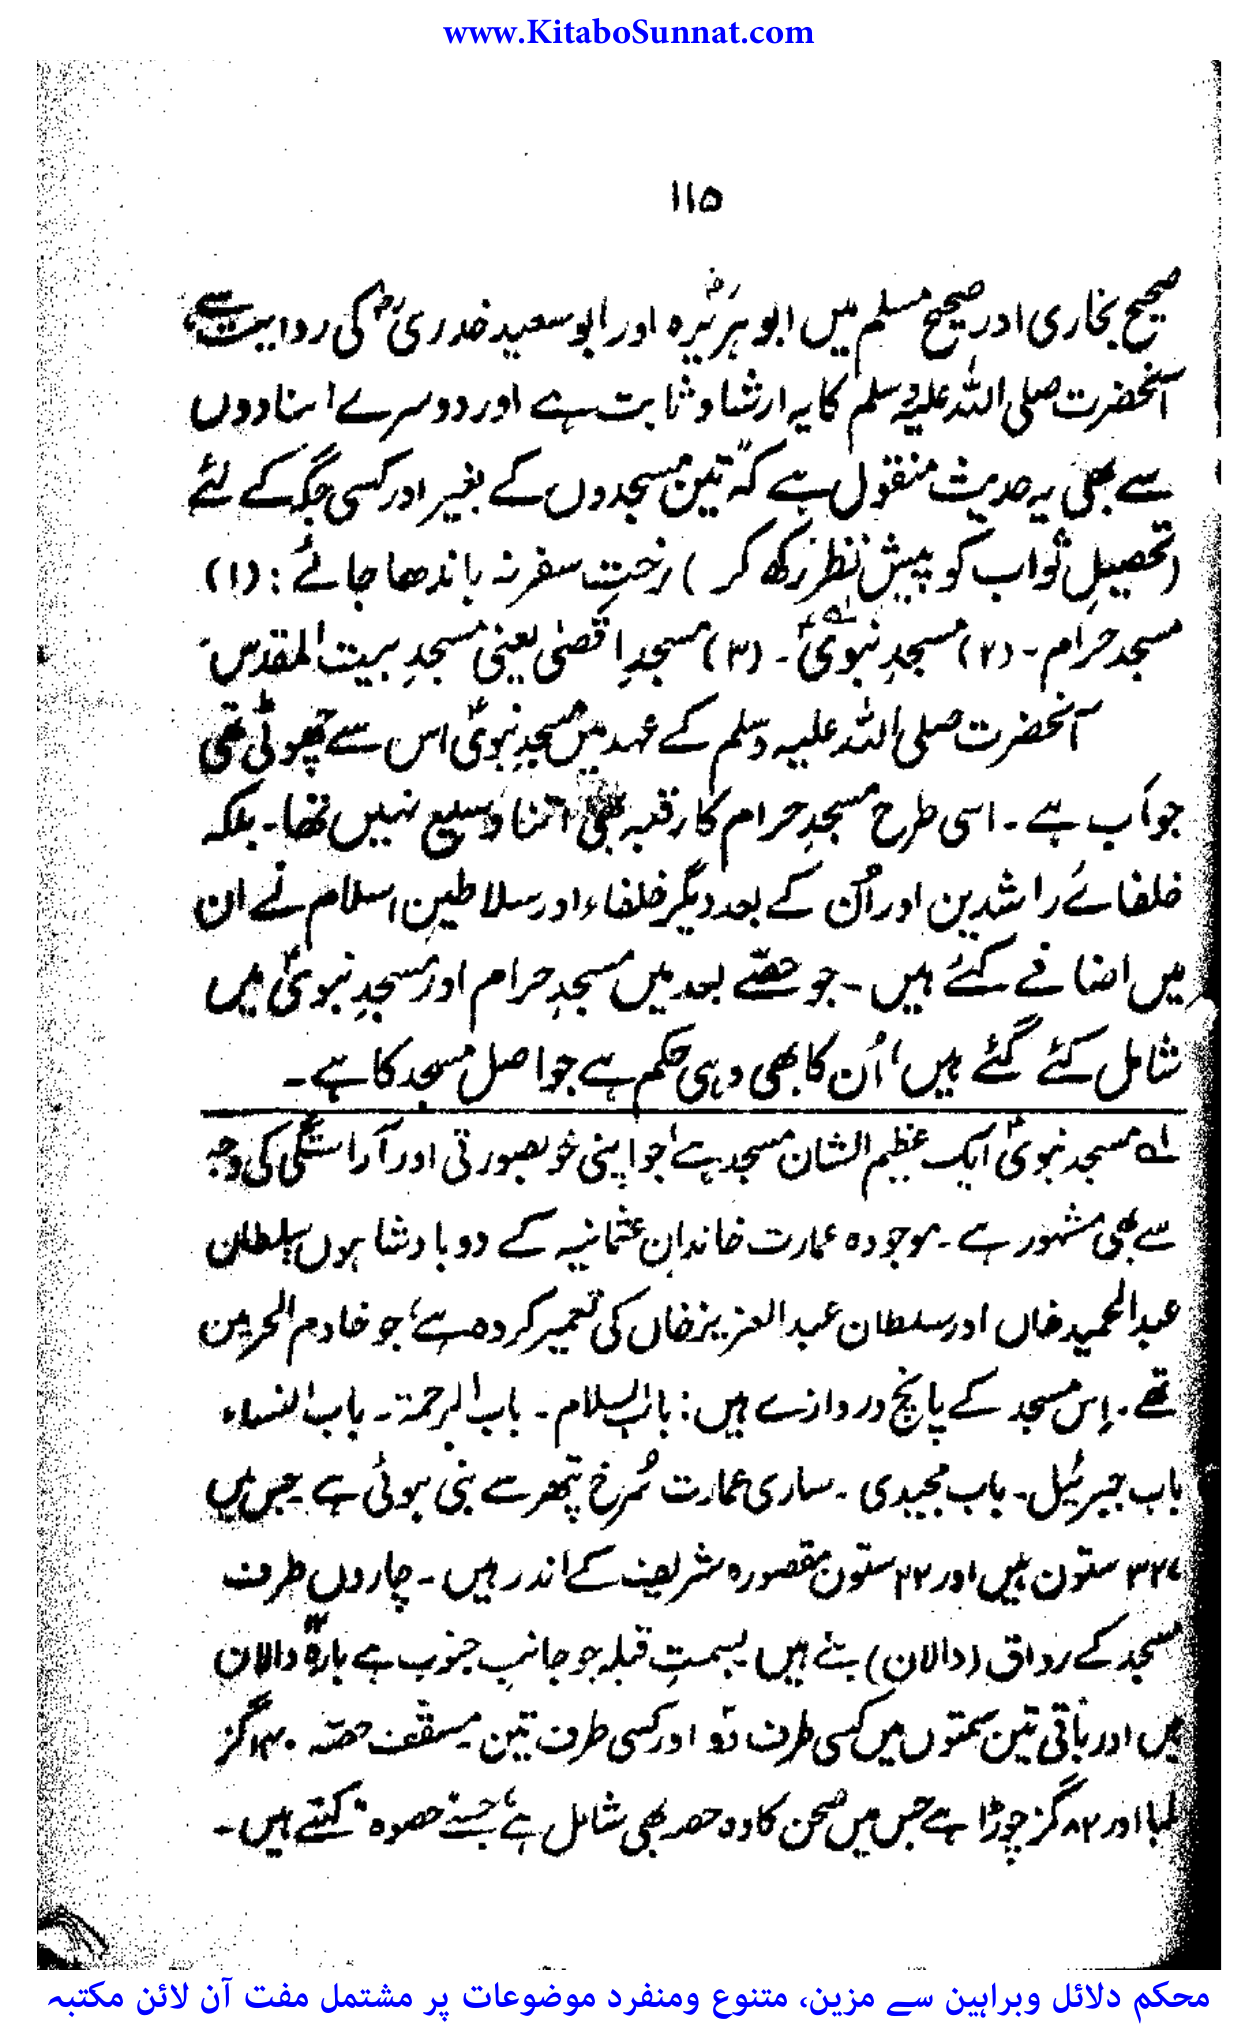 www.KitaboSunnat.com
۱۱۵
صحیح بخاری اور صحیح مسلم میں ابو ہریرہؓ اور ابو سعید خدریؓ کی روایت سے
آنحضرت صلی اللہ علیہ وسلم کا یہ ارشاد ثابت ہے اور دوسرے اسنادوں
سے بھی یہ حدیث منقول ہے کہ "تین مسجدوں کے بغیر اور کسی جگہ کے لئے
(تحصیلِ ثواب کو پیشِ نظر رکھ کر) رختِ سفر نہ باندھا جائے: (۱)
مسجد حرام۔ (۲) مسجدِ نبویؐ۱ے۔ (۳) مسجدِ اقصٰی یعنی مسجدِ بیت المقدس"
آنحضرت صلی اللہ علیہ وسلم کے عہد میں مسجدِ نبویؐ اس سے چھوٹی تھی
جو اَب ہے۔ اسی طرح مسجدِ حرام کا رقبہ بھی اتنا وسیع نہیں تھا۔ بلکہ
خلفائے راشدین اور اُن کے بعد دیگر خلفاء اور سلاطینِ اسلام نے ان
میں اضافے کئے ہیں۔ جو حصّے بعد میں مسجدِ حرام اور مسجدِ نبویؐ میں
شامل کئے گئے ہیں، اُن کا بھی وہی حکم ہے جو اصل مسجد کا ہے۔
۱ے مسجد نبویؐ ایک عظیم الشان مسجد ہے، جو اپنی خوبصورتی اور آراستگی کی وجہ
سے بھی مشہور ہے۔ موجودہ عمارت خاندانِ عثمانیہ کے دو بادشاہوں سلطان
عبدالحمید خاں اور سلطان عبدالعزیز خاں کی تعمیر کردہ ہے، جو خادم الحرمین
تھے۔ اِس مسجد کے پانچ دروازے ہیں: باب السلام۔ باب الرحمۃ۔ باب النساء
باب جبرئیل۔ باب مجیدی۔ ساری عمارت سُرخ پتھر سے بنی ہوئی ہے۔ جس میں
۳۲۷ ستون ہیں اور ۲۲ ستون مقصورہ شریف کے اندر ہیں۔ چاروں طرف
مسجد کے رواق (دالان) بنے ہیں۔ بسمتِ قبلہ جو جانبِ جنوب ہے بارہ۱۲ دالان
ہیں اور باقی تین سمتوں میں کسی طرف دو اور کسی طرف تین۔ مسقّف حصّہ ۱۴۰ گز
لمبا اور ۸۲ گز چوڑا ہے جس میں صحن کا وہ حصہ بھی شامل ہے، جسے "حصوہ" کہتے ہیں۔
محکم دلائل وبراہین سے مزین، متنوع ومنفرد موضوعات پر مشتمل مفت آن لائن مکتبہ